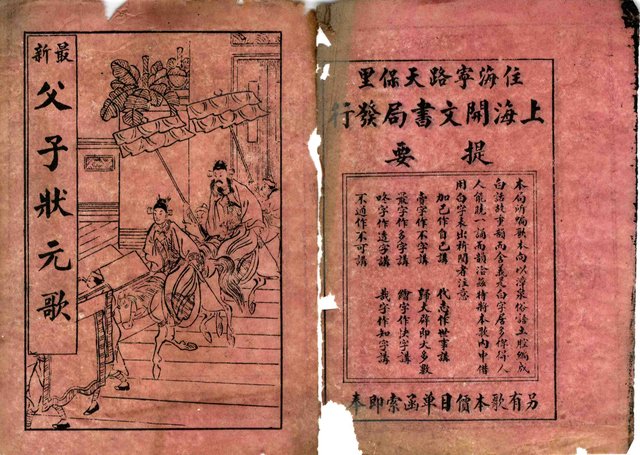 最新
父子狀元歌
住海寧路天保里
上海開文書局發行
提要
本局所編歌本向以漳泉俗語土腔編成
白話故事類而全義是白字居多俾得人
人能曉一誦而韻洽茲特將本歌內中借
用白字表出祈閱者注意
加己作自己講 代志作世事講
字作不字講 歸大群即大多數
字作多字講 字作快字講
字作這字講 哉字作知字講
不通作不可講
另有歌本價目單函索即奉